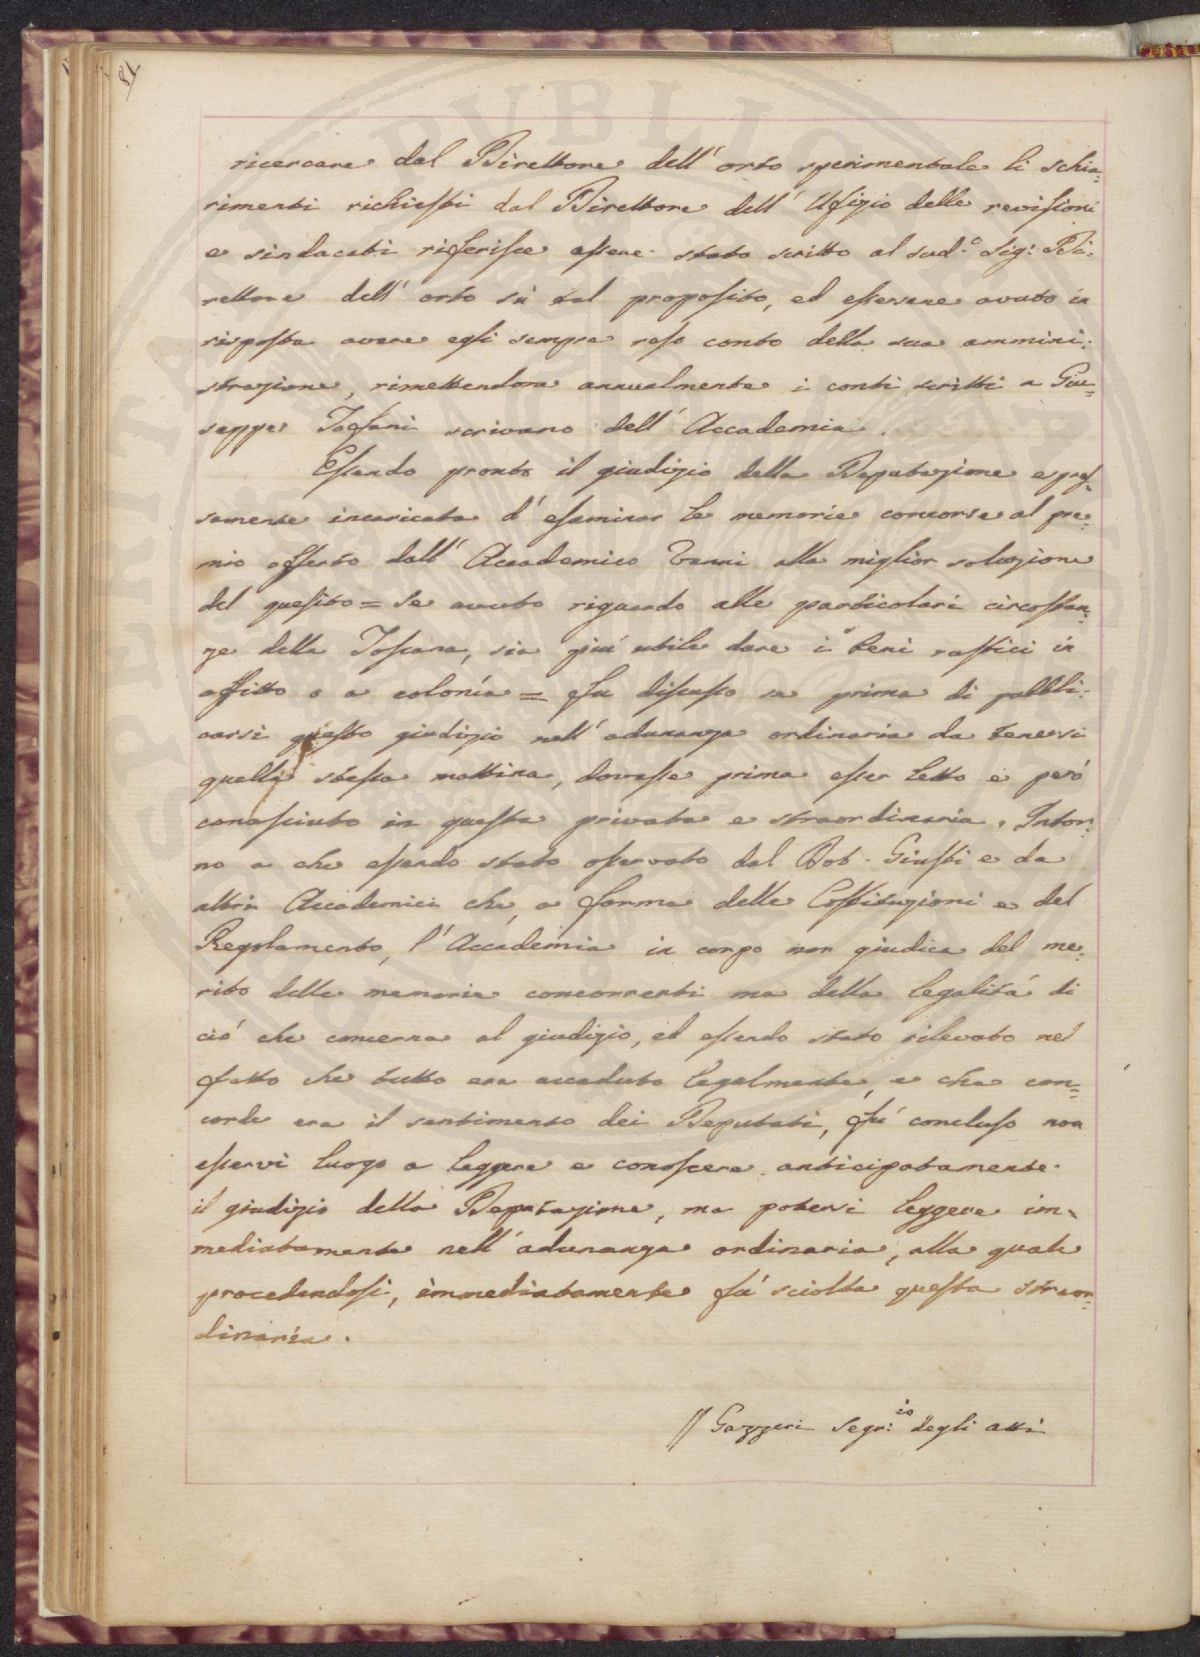 84
ricercare dal Direttore dell'orto sperimentale li schia=
rimenti richiesti dal Direttore dell'Ufizio delle revisioni
e sindacati riferisce essere stato scritto al sud.o Sig: Di:
rettore dell'orto sù tal proposito, ed essersene avuto in
risposta avere egli sempre reso conto della sua ammini:
strazione, rimettendone annualmente i conti scritti a Giu=
seppe Tofani scrivano dell'Accademia.
Essendo pronto il giudizio della Deputazione espres=
samente incaricata d'esaminar le memorie concorse al pre=
mio offerto dall'Accademico Vanni alla miglior soluzione
del quesito = Se avuto riguardo alle particolari circostan=
ze della Toscana, sia più utile dare i beni rustici in
affitto o a colonía = fu discusso se prima di pubbli:
carsi questo giudizio nell'adunanza ordinaria da tenersi
quella stessa mattina, dovesse prima esser letto e però
conosciuto in questa privata e straordinaria. Intor=
no a che essendo stato osservato dal Dot. Giusti e da
altri Accademici che, a forma delle Costituzioni e del
Regolamento, l'Accademia in corpo non giudica del me:
rito delle memorie concorrenti ma della legalità di
ciò che concerne al giudizio, ed essendo stato rilevato nel
fatto che tutto era acceduto legalmente, e che con=
corde era il sentimento dei Deputati, fù concluso non
esservi luogo a leggere e conoscere anticipatamente
il giudizio della Deputazione, ma potersi leggere im=
mediatamente nell'adunanza ordinaria, alla quale
procedendosi, immediatamente fù sciolta questa straor=
dinaria.
// Gazzeri Segr:io degli atti